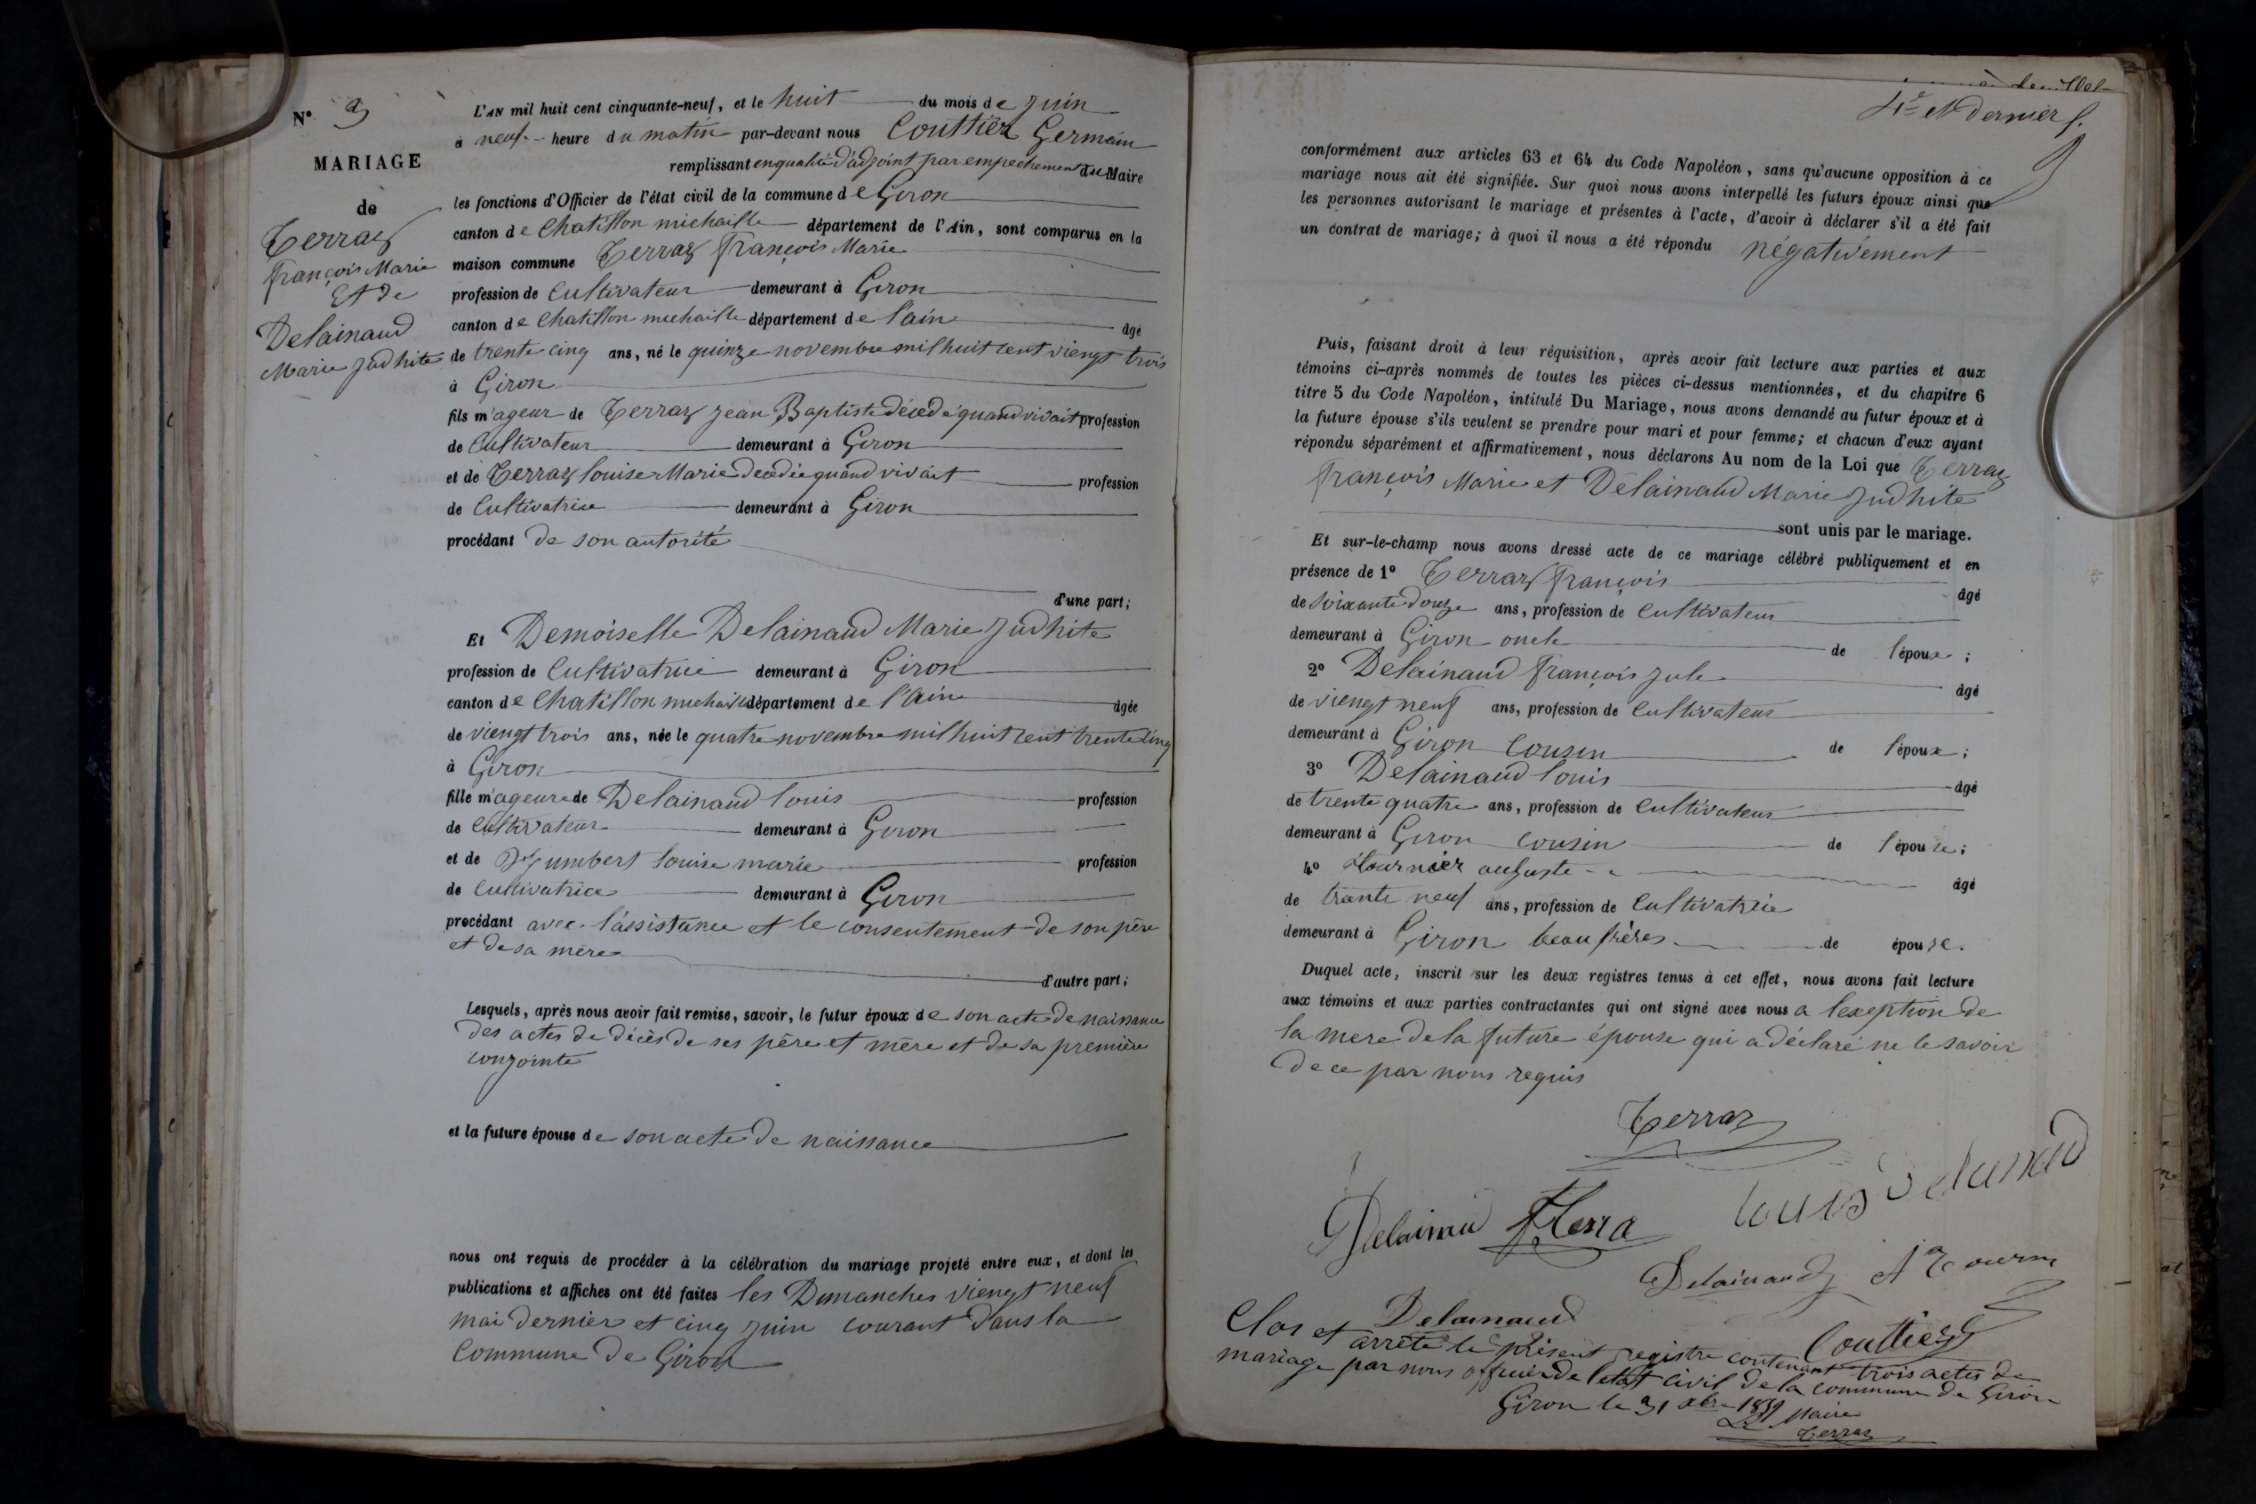 N° 3
MARIAGE
de
Terraz
françois Marie
Et de
Delainaud
Marie Judhite
L'AN mil huit cent cinquante-neuf, et le huit du mois de Juin
à neuf heure du matin par-devant nous Couttier Germain
remplissant en qualité d'adjoint par empechement du Maire
les fonctions d'Officier de l'état civil de la commune de Giron
canton de Chatillon michaille département de l'Ain, sont comparus en la
maison commune Terraz françois Marie
profession de Cultivateur demeurant à Giron
canton de Chatillon michaille département de l'ain âgé
de trente cinq ans, né le quinze novembre mil huit cent viengt trois
à Giron
fils m'ageur de Terraz Jean Baptiste décedé quand vivait profession
de Cultivateur demeurant à Giron
et de Terraz louise Marie decedée quand vivait profession
de Cultivatrice demeurant à Giron
procédant de son autorité
d'une part;
Et Demoiselle Delainaud Marie Judhite
profession de Cultivatrice demeurant à Giron
canton de Chatillon michaille département de l'Ain âgée
de viengt trois ans, née le quatre novembre mil huit cent trente cinq
à Giron
fille m'ageure de Delainaud louis profession
de Cultivateur demeurant à Giron
et de humbert louise marie profession
de Cultivatrice demeurant à Giron
procédant avec l'assistance et le consentement de son père
et de sa mère
d'autre part;
Lesquels, après nous avoir fait remise, savoir, le futur époux de son acte de naissance
des actes de décès de ses père et mère et de sa première
conjointe
et la future épouse de son acte de naissance
nous ont requis de procéder à la célébration du mariage projeté entre eux, et dont les
publications et affiches ont été faites les Dimanches viengt neuf
mai dernier et cinq juin courant dans la
Commune de Giron
4e et dernier f.
conformément aux articles 63 et 64 du Code Napoléon, sans qu'aucune opposition à ce
mariage nous ait été signifiée. Sur quoi nous avons interpellé les futurs époux ainsi que
les personnes autorisant le mariage et présentes à l'acte, d'avoir à déclarer s'il a été fait
un contrat de mariage; à quoi il nous a été répondu négativement
Puis, faisant droit à leur réquisition, après avoir fait lecture aux parties et aux
témoins ci-après nommés de toutes les pièces ci-dessus mentionnées, et du chapitre 6
titre 5 du Code Napoléon, intitulé Du Mariage, nous avons demandé au futur époux et à
la future épouse s'ils veulent se prendre pour mari et pour femme; et chacun d'eux ayant
répondu séparément et affirmativement, nous déclarons Au nom de la Loi que Terraz
françois Marie et Delainaud Marie Judhite
sont unis par le mariage.
Et sur-le-champ nous avons dressé acte de ce mariage célébré publiquement et en
présence de 1° Terraz françois âgé
de soixante douze ans, profession de Cultivateur
demeurant à Giron oncle de l'époux;
2° Delainaud françois Jule âgé
de viengt neuf ans, profession de Cultivateur
demeurant à Giron Cousin de l'époux;
3° Delainaud louis âgé
de trente quatre ans, profession de Cultivateur
demeurant à Giron cousin de l'épouse;
4° tournier auguste âgé
de trante neuf ans, profession de Cultivatric
demeurant à Giron beau frères de épouse.
Duquel acte, inscrit sur les deux registres tenus à cet effet, nous avons fait lecture
aux témoins et aux parties contractantes qui ont signé avec nous a l'exeption de
la mere de la future épouse qui a déclaré ne le savoir
de ce par nous requis
Terraz
louis Delanaud
Delainau fTerra
Delainaud A Tourni
Delainaud
Couttier
Clos et arrêté le présent registre contenant trois actes de
mariage par nous officier de l'état civil de la commune de Giron
Giron le 31 xbre 1859
Le Maire
Terraz